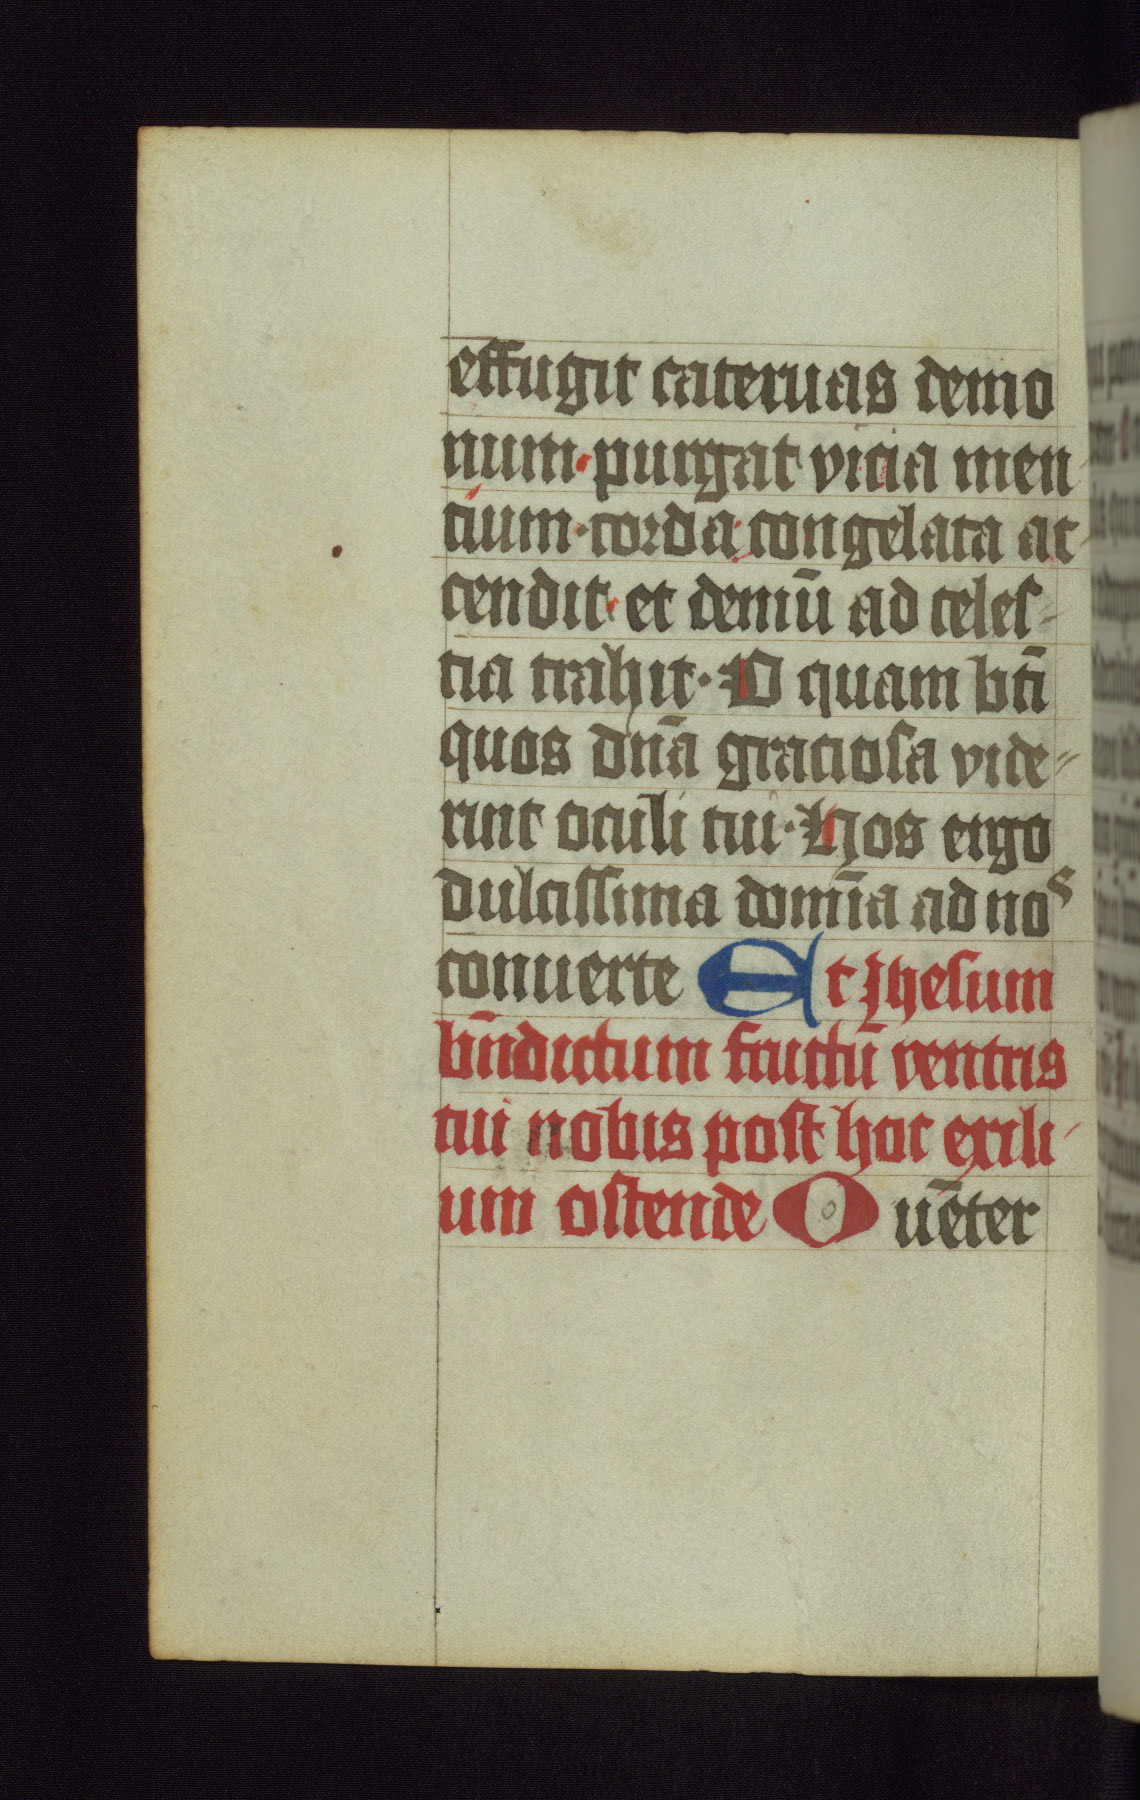 effugit cateruas demo
num · purgat vicia men
tium · corda congelata ac
cendit · et demū ad celes
tia trahit · O quam bt̄i
quos dn̄a graciosa vide
rint oculi tui · Hos ergo
dulcissima domīa ad nos
conuerte Et Jhesum
bn̄dictum fructū ventris
tui nobis post hoc exili
um ostende O uēter